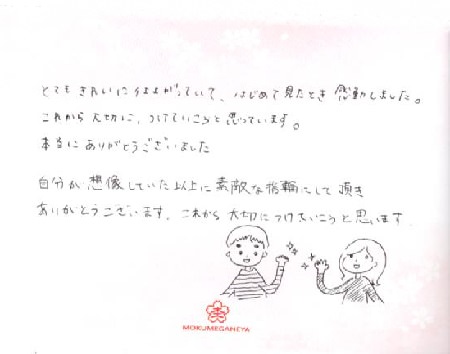 とてもきれいに仕上がっていて、はじめて見たとき感動しました。
これから大切に、つけていこうと思っています。
本当にありがとうございました
自分が想像していた以上に素敵な指輪にして頂き
ありがとうございます。これから大切につけたいこうと思います
MOKUMEGANEYA